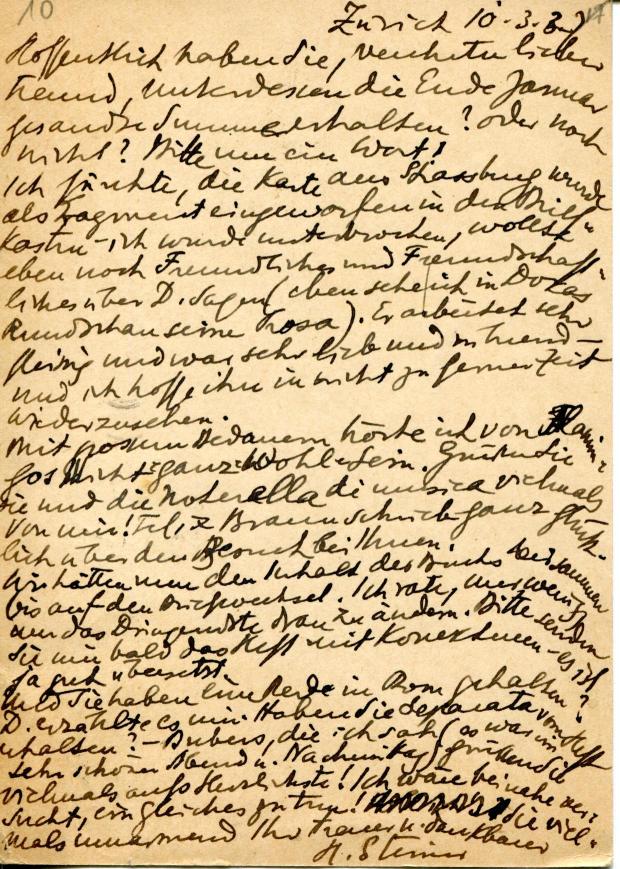 10
Zürich 10.3.
Hoffentlich haben Sie, verehrter lieber
Freund, unterdessen die Ende Januar
gesandte Summe erhalten? oder noch
nicht? Bitte nur ein Wort!
Ich fürchte, die Karte aus Strassburg wurde
als Fragment eingeworfen in den Brief-
kasten - ich wurde unterbrochen, wollte
eben noch Freundliches und Freundschaft-
liches über D. sagen (eben scheint in
Rundschau seine Prosa). Er arbeitet sehr
fleissig und war sehr lieb und
und ich hoffe ihn in nicht zu ferner Zeit
wiederzusehen.
Mit grossem Bedauern hörte ich von
Nicht-ganz-Wohl-Sein. Grüssen Sie
sie und die della musica vielmals
von mir! Felix Braun schrieb ganz glück-
lich über den Besuch bei Ihnen.
Wir hätten nun den Inhalt des Buchs beisammen
bis auf den Briefwechsel. Ich rate, nur wenig,
nur das Dringendste dran zu ändern. Bitte senden
Sie mir bald das Heft mit Korrekturen - es ist
ja gut übersetzt.
Und Sie haben eine Rede in Rom gehalten?
D. erzählte es mir. Haben Sie Separata vom Heft
erhalten? - Dubers, die ich sah (es war ein
sehr schöner Abend u. Nachmittag) grüssen Sie
vielmals aufs Herzlichste! Ich wäre beinahe ver-
sucht, ein gleiches zu tun! die viel-
mals umarmend Ihr treuer u. dankbarer
H. Steiner